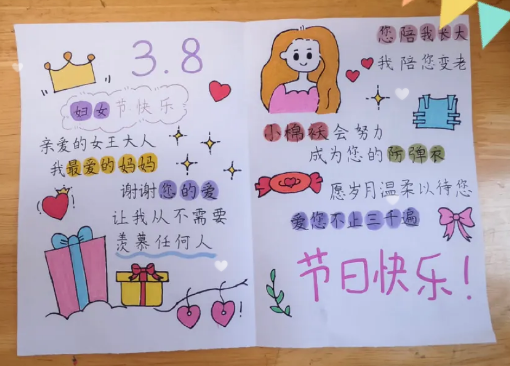 3.8
妇女节快乐
亲爱的女王大人
我最爱的妈妈
谢谢您的爱
让我从不需要
羡慕任何人
您陪我长大
我陪您变老
小棉袄会努力
成为您的防弹衣
愿岁月温柔以待您
爱您不止三千遍
节日快乐!